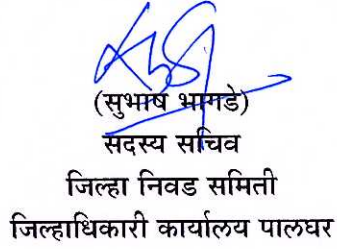 (सुभाष भागडे)
सदस्य सचिव
जिल्हा निवड समिती
जिल्हाधिकारी कार्यालय पालघर